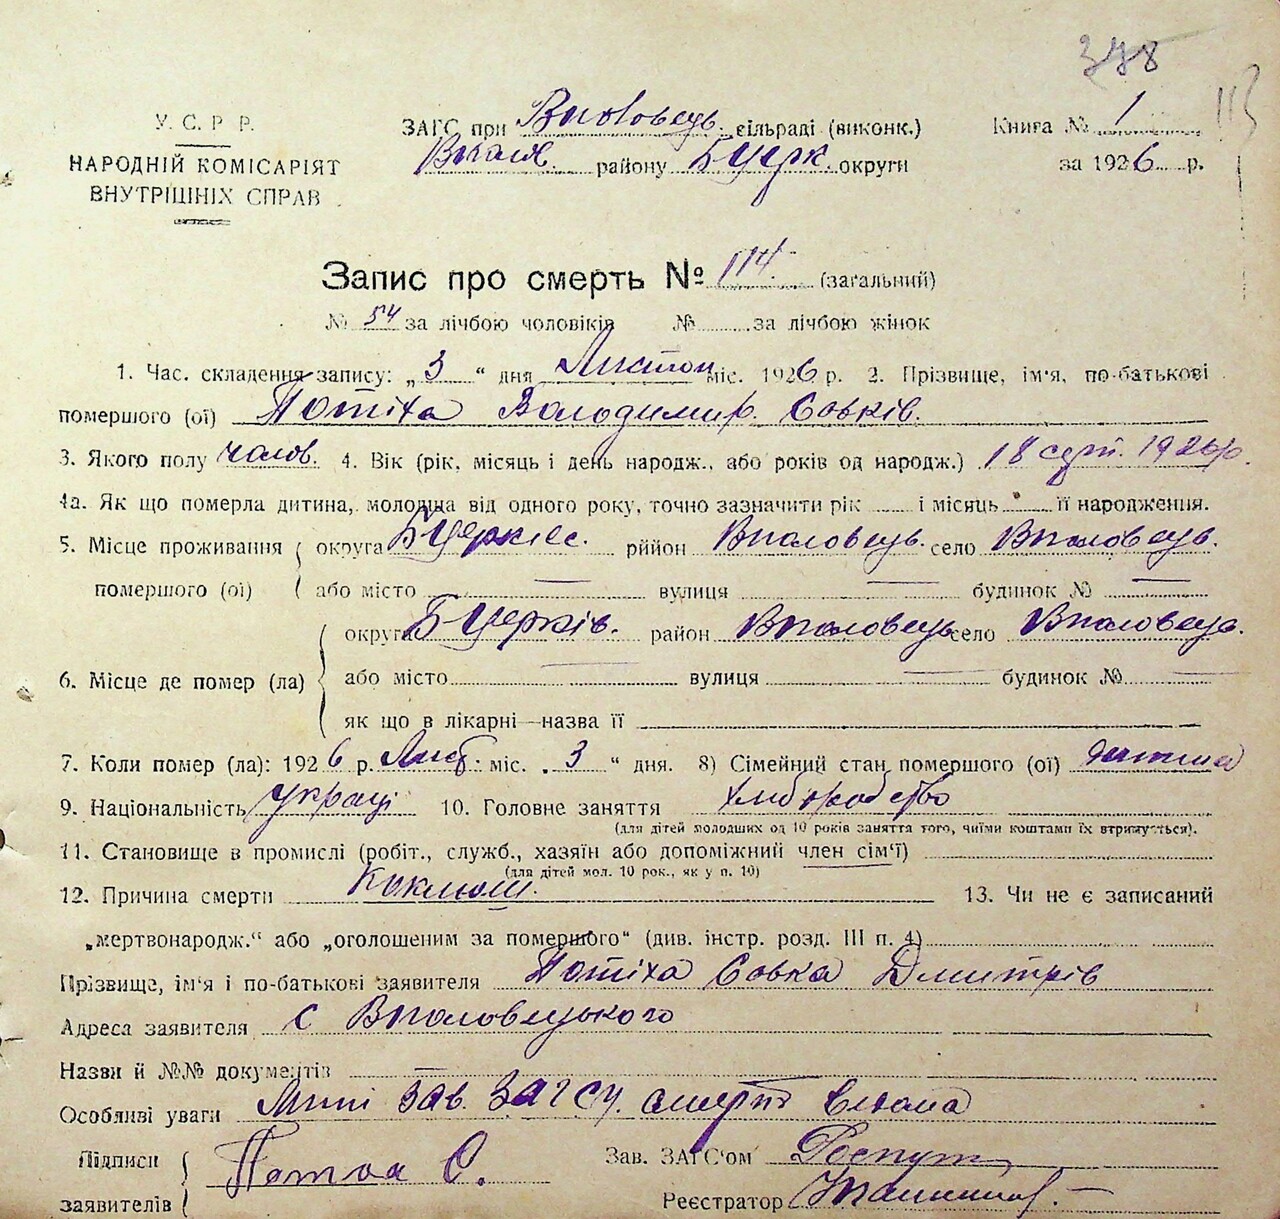 378
У. С. Р. Р.
НАРОДНІЙ КОМІСАРІЯТ
ВНУТРІШНІХ СПРАВ
ЗАГС при Вполовець. сільраді (виконк.)
Вполов. району Бцерк. округи
Книга № 1
за 1926 р.
Запис про смерть № 114 (загальний)
№ 54 за лічбою чоловіків № за лічбою жінок
1. Час. складення запису: „3“ дня Листоп міс. 1926 р. 2. Прізвище, ім'я, по-батькові
помершого (ої) Потіха Володимир. Совків.
3. Якого полу чолов. 4. Вік (рік, місяць і день народж., або років од народж.) 18 серп. 1926р.
4а. Як що померла дитина, молодша від одного року, точно зазначити рік і місяць її народження.
5. Місце проживання округа Бцеркієс. рййон Вполовець. село Вполовець.
помершого (ої) або місто — вулиця — будинок № —
округа Бцерків. район Вполовець село Вполовець.
6. Місце де помер (ла) або місто — вулиця — будинок № —
як що в лікарні—назва її
7. Коли помер (ла): 1926 р. Лист. міс. „3“ дня. 8) Сімейний стан помершого (ої) дитина
9. Національність украці 10. Головне заняття хліборобство
(для дітей молодших од 10 років заняття того, чиїми коштами їх втрижується).
11. Становище в промислі (робіт., служб., хазяїн або допоміжний член сім'ї)
(для дітей мол. 10 рок., як у п. 10)
12. Причина смерти Коклюш. 13. Чи не є записаний
„мертвонародж.“ або „оголошеним за помершого“ (див. інстр. розд. III п. 4)
Прізвище, ім'я і по-батькові заявителя Потіха Совка Дмитрів
Адреса заявителя с Вполовецького
Назви й №№ документів —
Особливі уваги Мині зав. ЗАГСу. смерть відома
Підписи
заявителів
С.
Зав. ЗАГС'ом
Реєстратор